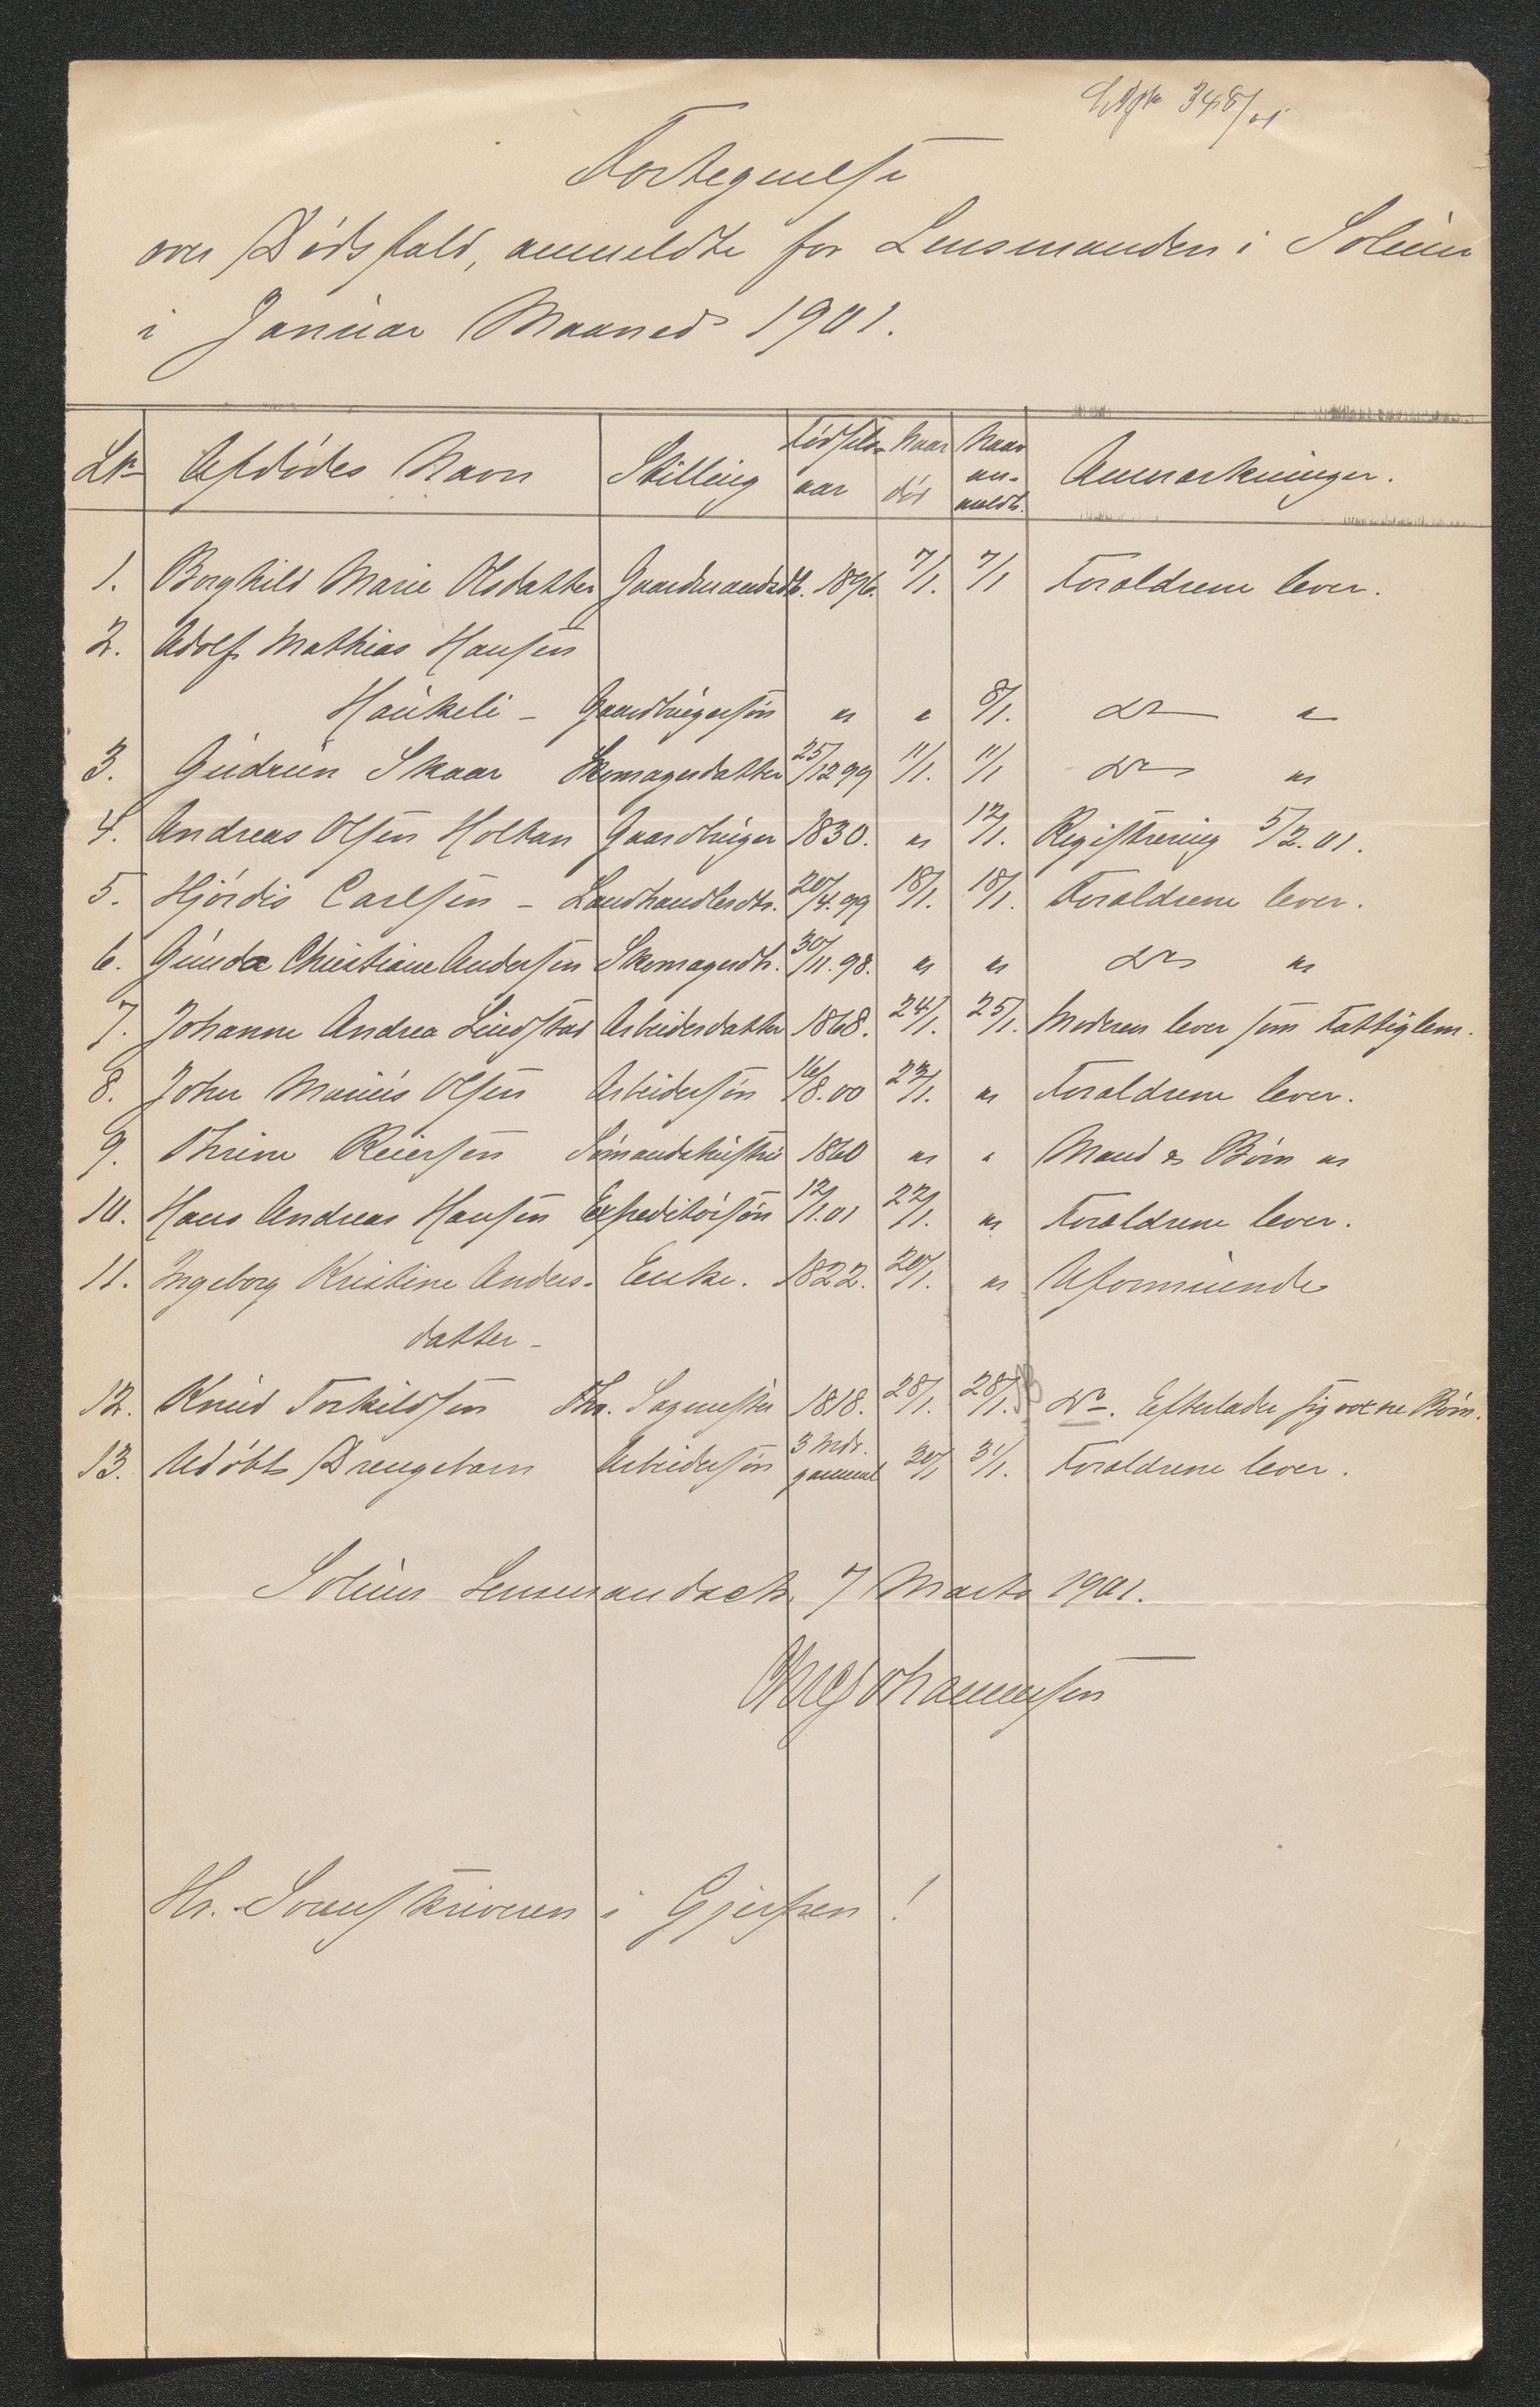 348/01
Fortegnelse
over Dødsfald, anmeldte for Lensmanden i Solum
i Januar Maaned 1901.
Lno Afdødes Navn Stilling Fødsels- aar Naar død Naar an- meldt. Anmærkninger.
1. Borghild Marie Olsdatter Gaardmandsdtr. 1896. 7/1. 7/1 Forældrene lever.
2. Adolf Mathias Hansen
Haukeli - Gaardbrugersøn " " 8/1. do "
3. Gudrun Skaar Skomagerdatter 25/12 99 11/1. 11/1 do "
4. Andreas Olsen Holtan Gaardbruger 1830. " 12/1. Registrering 5/2. 01.
5. Hjørdis Carlsen - Landhandlerdtr. 20/4.99 18/1. 18/1. Forældrene lever.
6. Gunda Christiane Andersen Skomagerdtr. 30/11.98. " " do "
7. Johanne Andrea Lindstad Arbeiderdatter 1868. 24/1. 25/1. Moderen lever som Fattiglem.
8. John Marius Olsen Arbeidersøn 16/8.00 23/1. " Forældrene lever.
9. Thrine Reiersen Sømandshustru 1860 " " Mand & Børn "
10. Hans Andreas Hansen Expeditørsøn 12/1.01 22/1. " Forældrene lever.
11. Ingeborg Kristine Anders- Enke. 1822. 20/1. " Uformuende
datter -
12. Knud Torkildsen Fhv. Sagmester 1818. 28/1. 28/1. Do. Efterlader sig voxne Børn.
13. Udøbt Drengebarn Arbeidersøn 3 Mdr. gammel 30/1 31/1. Forældrene lever.
Solum Lensmandsett. 7 Marts 1901.
Johannessen
Hr. Sorenskriveren i Gjerpen!